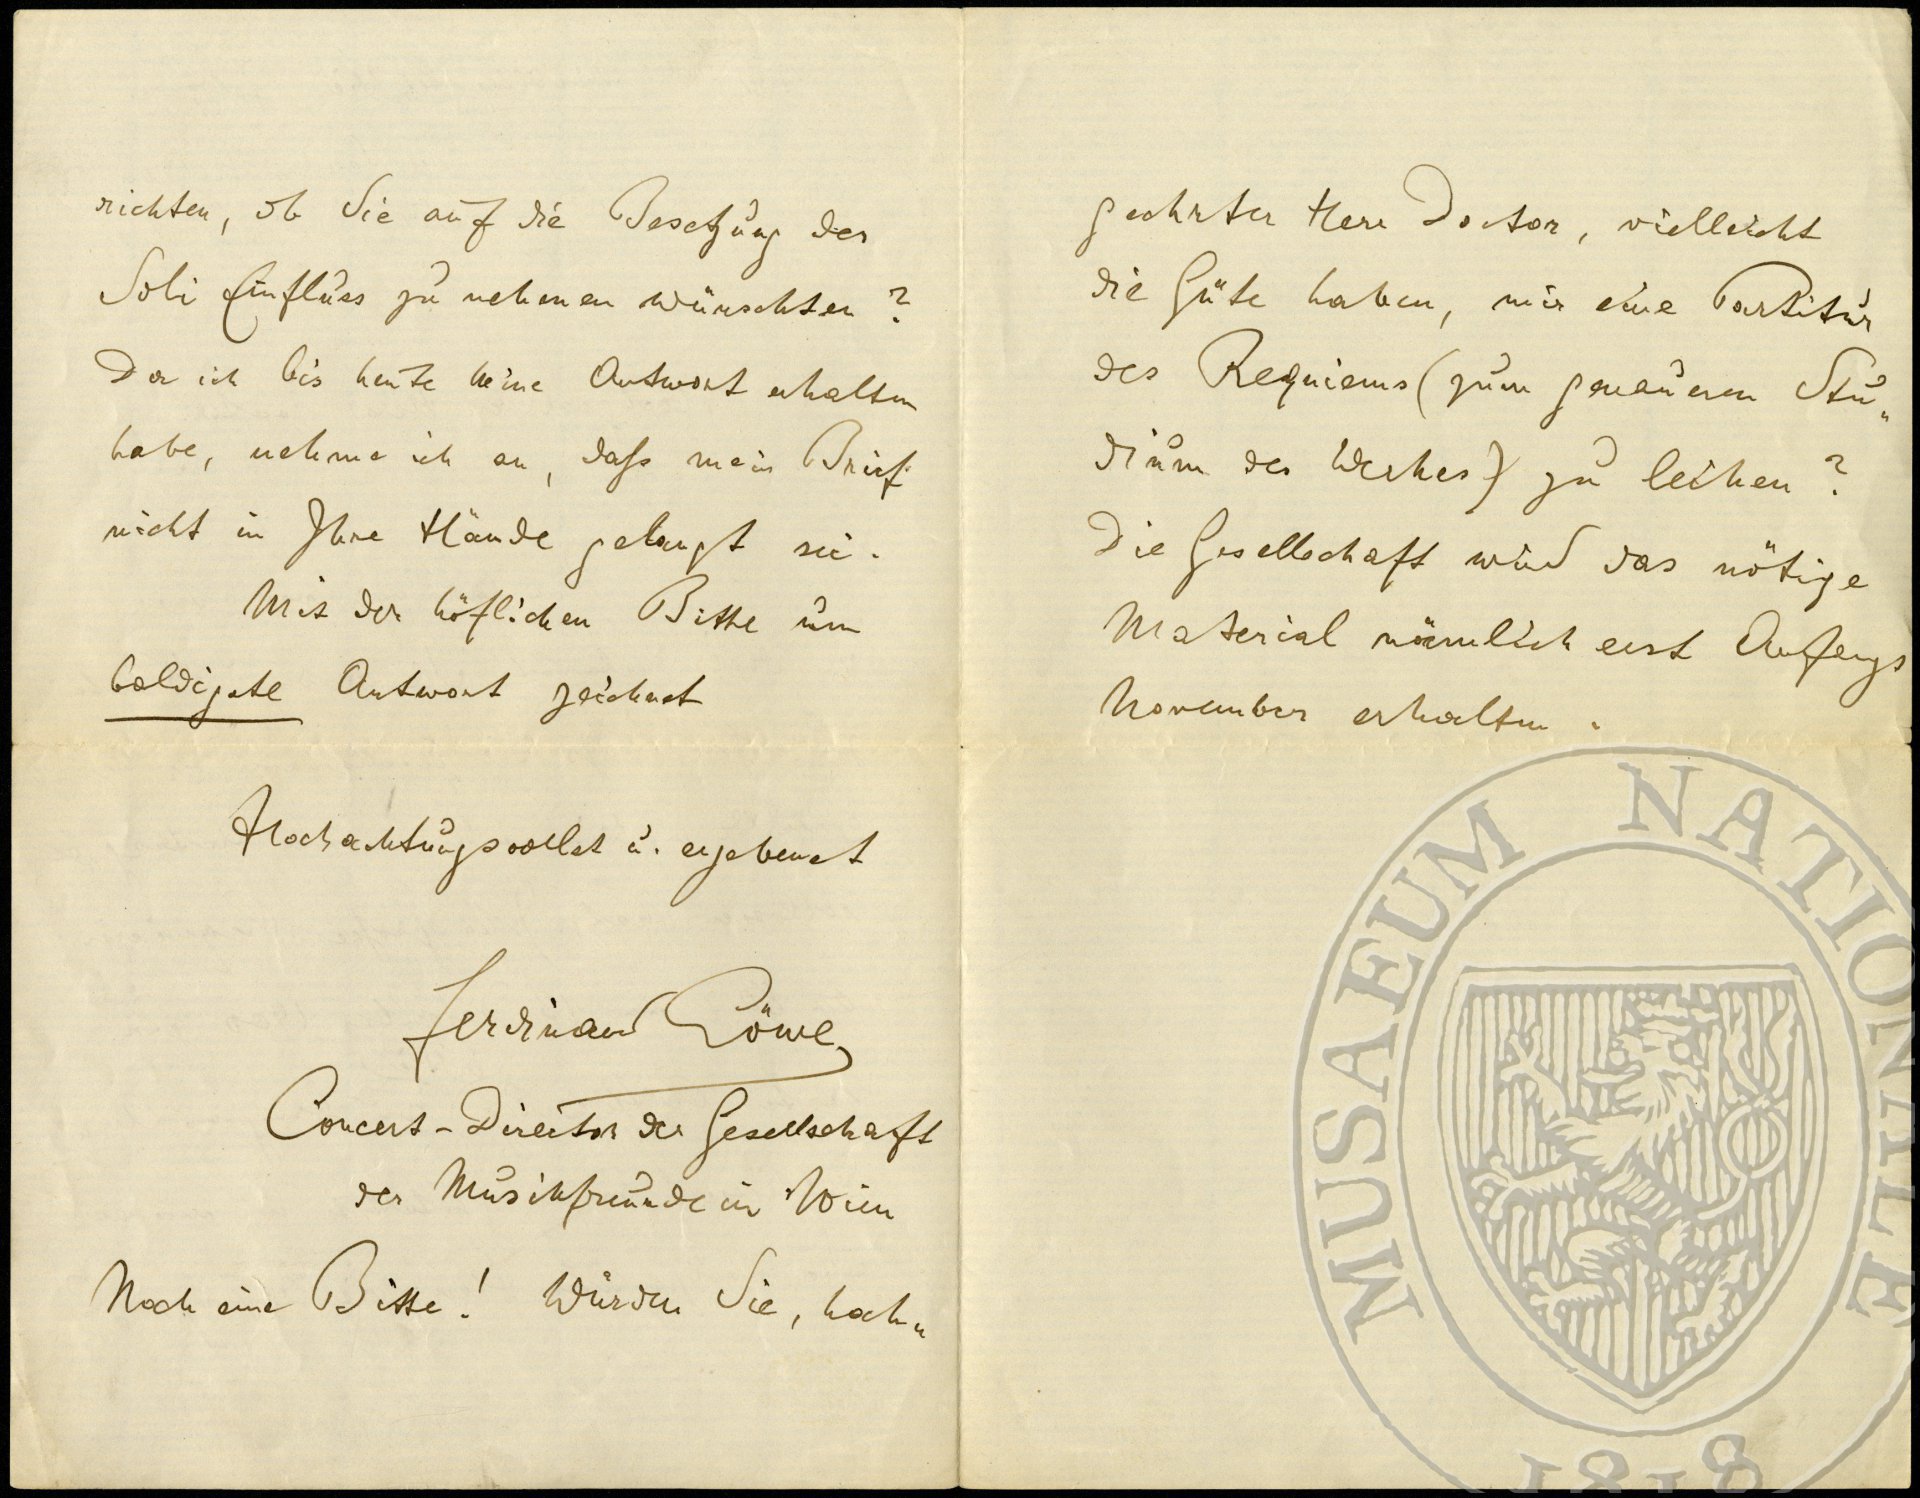 richten, ob Sie auf die Besetzung der
Soli Einfluss zu nehmen wünschten?
Da ich bis heute keine Antwort erhalten
habe, nehme ich an, dass mein Brief
nicht in Ihre Hände gelangt sei.
Mit der höflichen Bitte um
baldigste Antwort zeichnet
Hochachtungsvollst u. ergebenst
Ferdinand Löwe
Concert-Director der Gesellschaft
der Musikfreunde in Wien
Noch eine Bitte! Würden Sie, hoch„
geehrter Herr Doctor, vielleicht
die Güte haben, mir eine Partitur
des Requiems (zum genaueren Stu„
dium des Werkes) zu leihen?
Die Gesellschaft wird das nötige
Material nämlich erst Anfangs
November erhalten.
MUSAEUM NATIONALE
1818